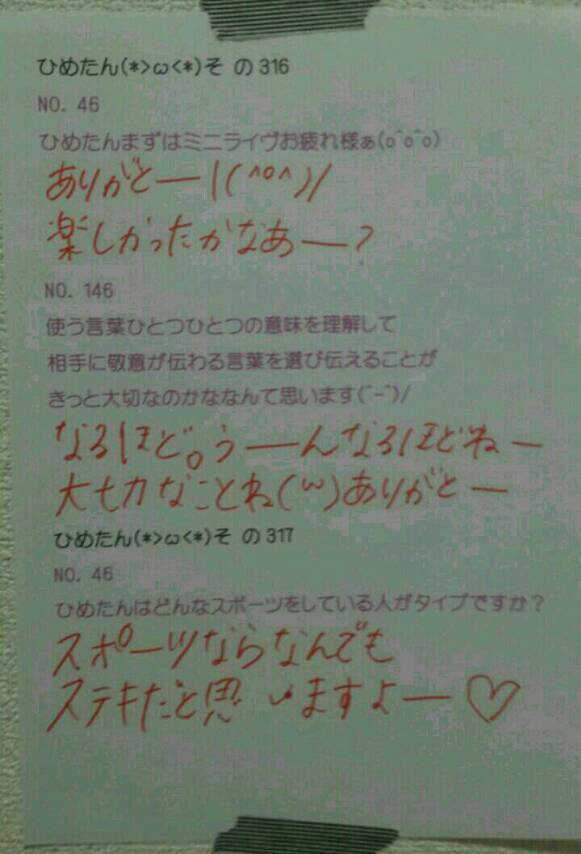 ひめたん(*>ω<*)そ の316
NO. 46
ひめたんまずはミニライヴお疲れ様ぁ(o^o^o)
ありがとー\(^o^)/
楽しかったかなあー?
NO. 146
使う言葉ひとつひとつの意味を理解して
相手に敬意が伝わる言葉を選び伝えることが
きっと大切なのかななんて思います(´-`)/
なるほど。うーんなるほどねー
大切なことね(ω)ありがとー
ひめたん(*>ω<*)そ の317
NO. 46
ひめたんはどんなスポーツをしている人がタイプですか?
スポーツならなんでも
ステキだと思いますよー♡